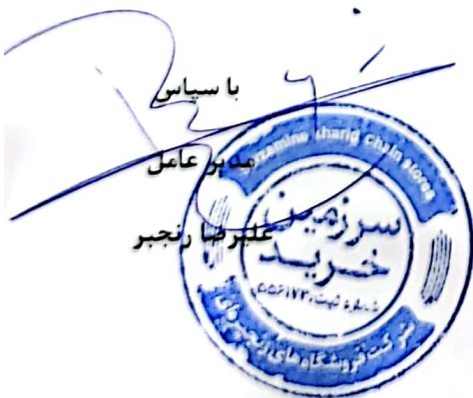 با سپاس
مدیر عامل
علیرضا رنجبر
Sarzamine kharid chain stores
سرزمین
خرید
شماره ثبت:
شرکت فروشگاه های زنجیره ای